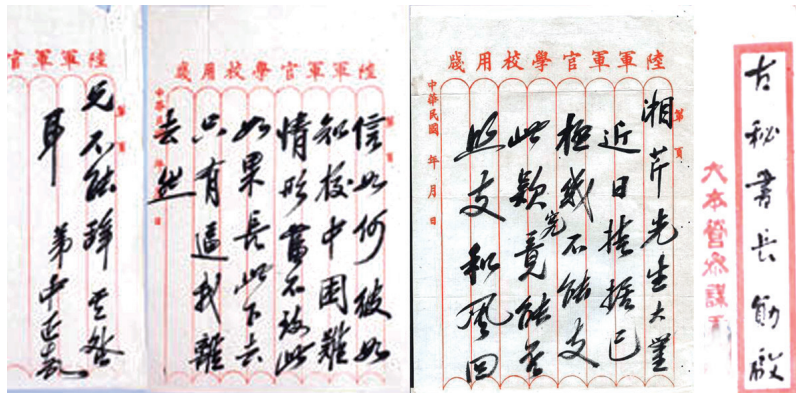 古秘書長勛啟
大本營參謀
陸軍軍官學校用牋
第 頁
湘芹先生大鑒
近日拮据已
極不能支
此款究竟能否
照支和風回
中華民國 年 月 日
陸軍軍官學校用牋
第 頁
信如何彼如
知校中困難
情形當不致此
如果長此下去
只有逼我離
去然
中華民國 日
陸軍軍官
第 頁
兄不能辭其咎
耶 弟中正